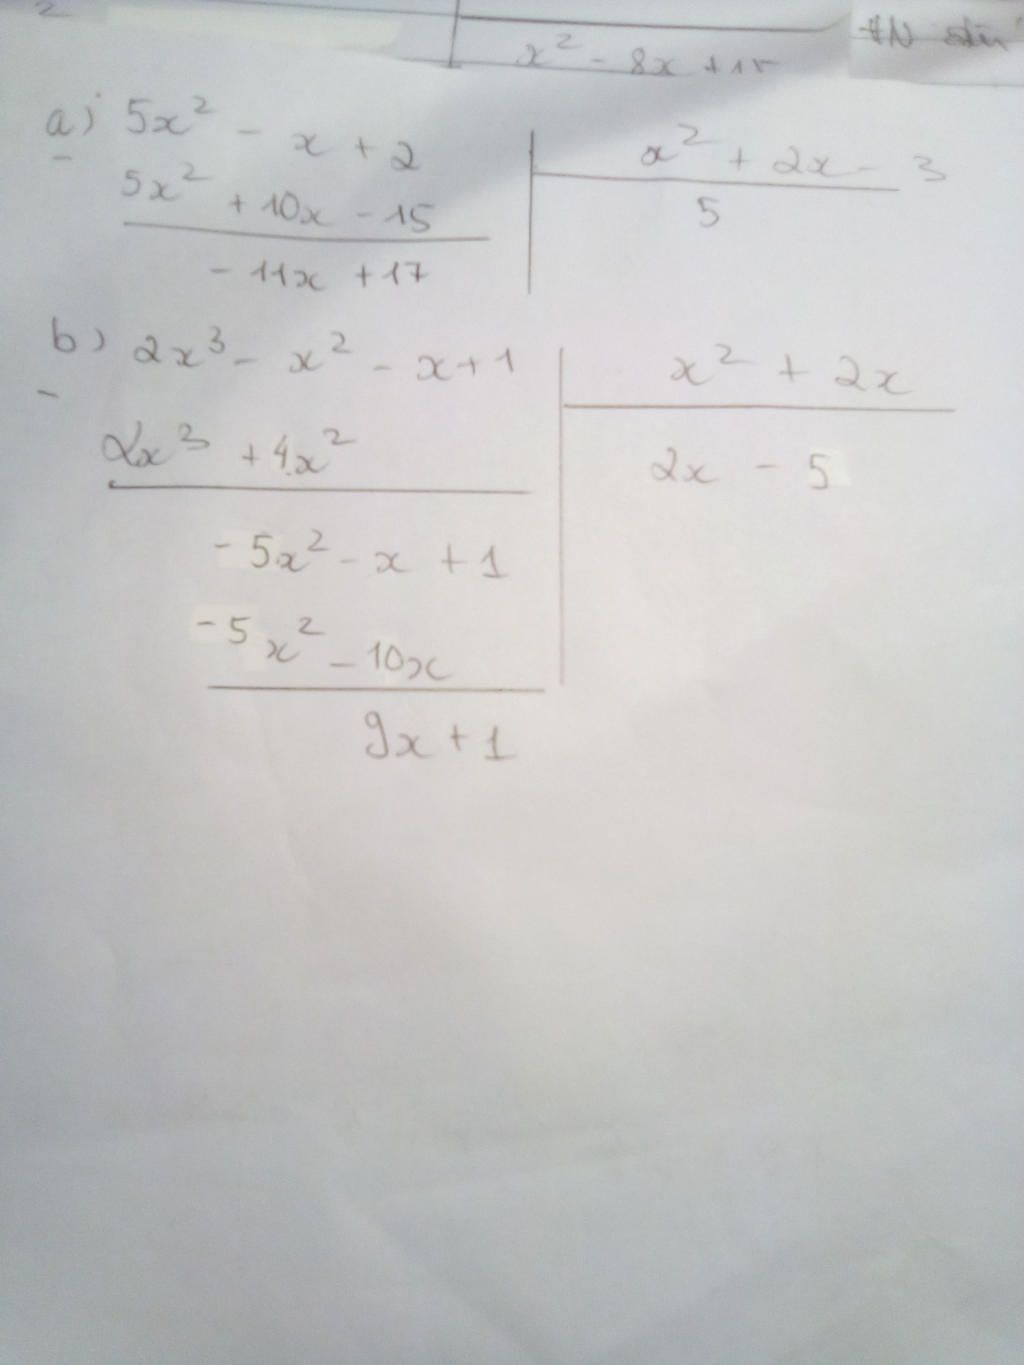 2
x² - 8x + 15
a) 5x² - x + 2
x² + 2x - 3
-
5x² + 10x - 15
5
- 11x + 17
b) 2x³ - x² - x + 1
x² + 2x
-
2x³ + 4x²
2x - 5
- 5x² - x + 1
- 5x² - 10x
9x + 1